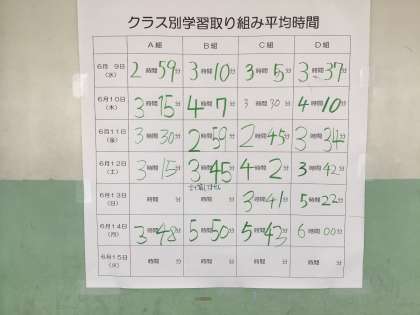 クラス別学習取り組み平均時間
A組 B組 C組 D組
6月 9日(水) 2時間59分 3時間10分 3時間 5分 3時間37分
6月10日(木) 3時間15分 4時間 7分 3時間30分 4時間10分
6月11日(金) 3時間30分 2時間59分 2時間45分 3時間34分
6月12日(土) 3時間15分 3時間45分 4時間 2分 3時間42分
6月13日(日) 時間 分 時間 分 3時間41分 5時間22分
6月14日(月) 3時間48分 5時間50分 5時間43分 6時間00分
6月15日(火) 時間 分 時間 分 時間 分 時間 分